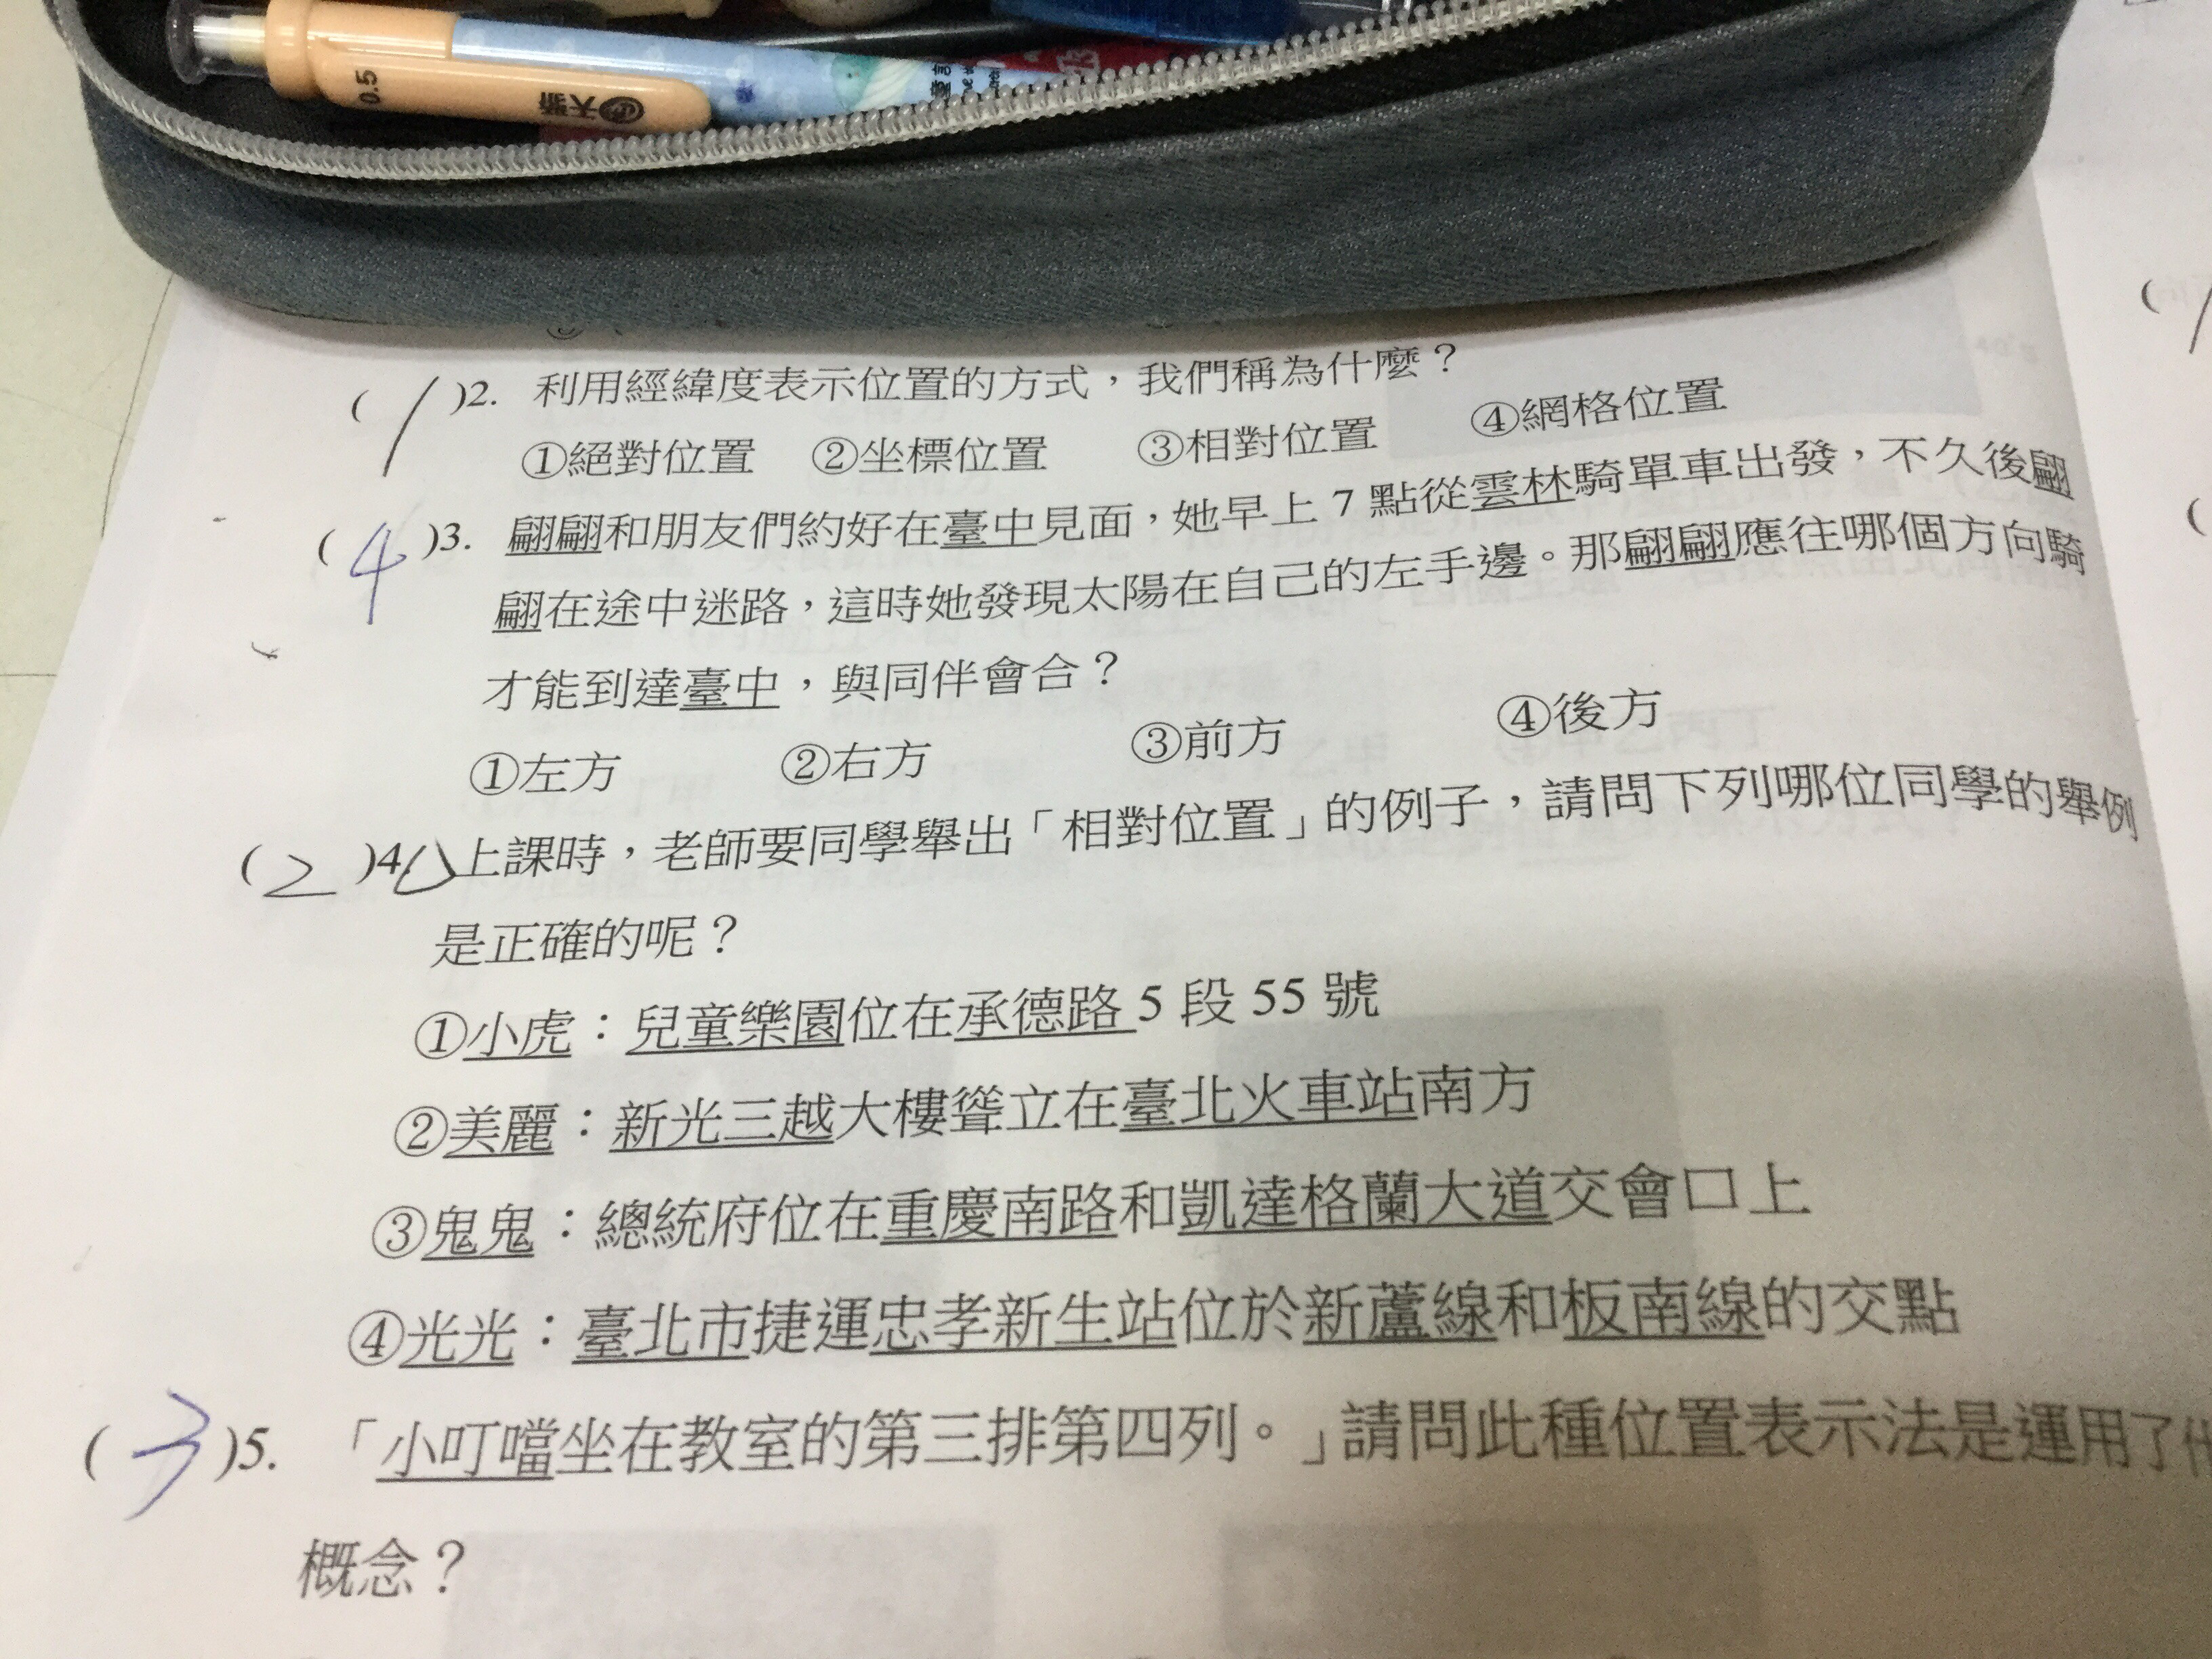 0.5 天骄
( 1 )2. 利用經緯度表示位置的方式，我們稱為什麼？
①絕對位置 ②坐標位置 ③相對位置 ④網格位置
( 4 )3. 翩翩和朋友們約好在臺中見面，她早上 7 點從雲林騎單車出發，不久後翩
翩在途中迷路，這時她發現太陽在自己的左手邊。那翩翩應往哪個方向騎
才能到達臺中，與同伴會合？
①左方 ②右方 ③前方 ④後方
( 2 )4. 上課時，老師要同學舉出「相對位置」的例子，請問下列哪位同學的舉例
是正確的呢？
①小虎：兒童樂園位在承德路 5 段 55 號
②美麗：新光三越大樓聳立在臺北火車站南方
③鬼鬼：總統府位在重慶南路和凱達格蘭大道交會口上
④光光：臺北市捷運忠孝新生站位於新蘆線和板南線的交點
( 3 )5. 「小叮噹坐在教室的第三排第四列。」請問此種位置表示法是運用了
概念？